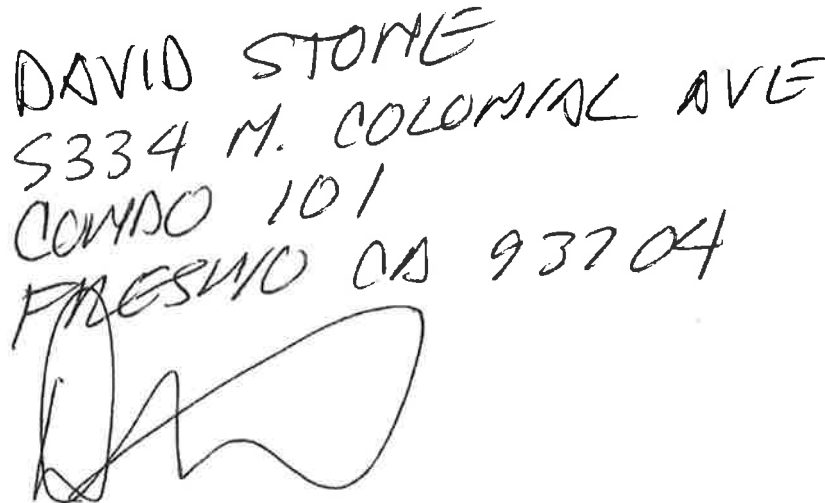 DAVID STONE
5334 N. COLONIAL AVE
CONDO 101
FRESNO CA 93704